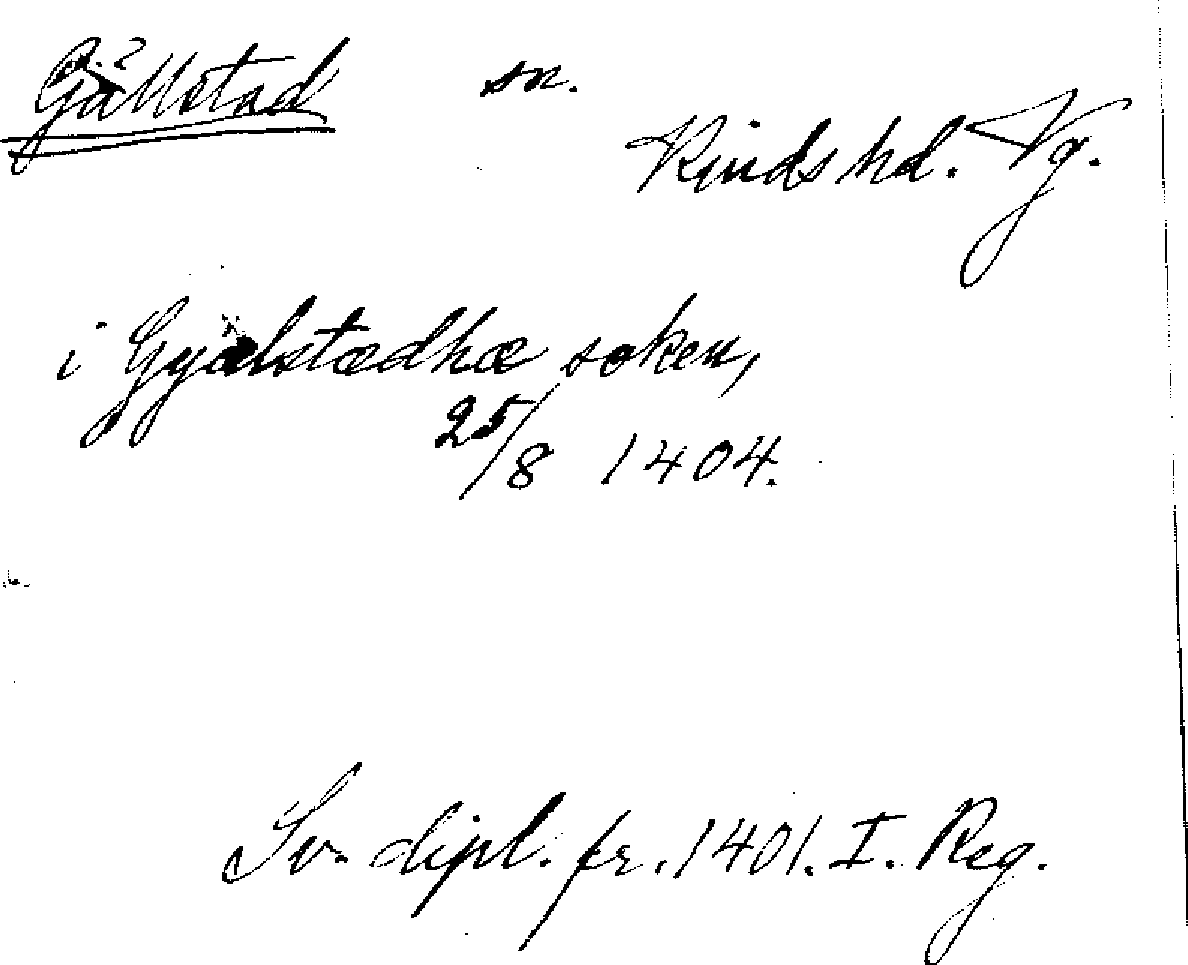 Gällstad sn.
Kinds hd. Vg.
i Gyælstædhæ soken,
25/8 1404.
Sv. dipl. fr. 1401. I. Reg.